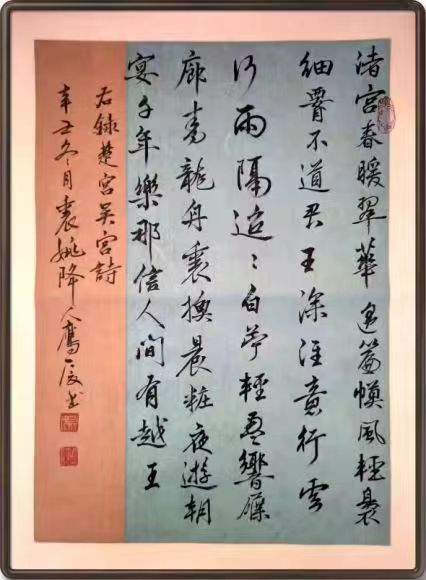 渚宮春暖翠華遥簾幙風輕裊
細腰不道君王深注意行雲
行雨隔迢〻白苧輕盈響屧
廊青龍舟裏換晨粧夜遊朝
宴千年樂那信人間有越王
右録楚宮吴宮詩
辛丑冬月姚降人書